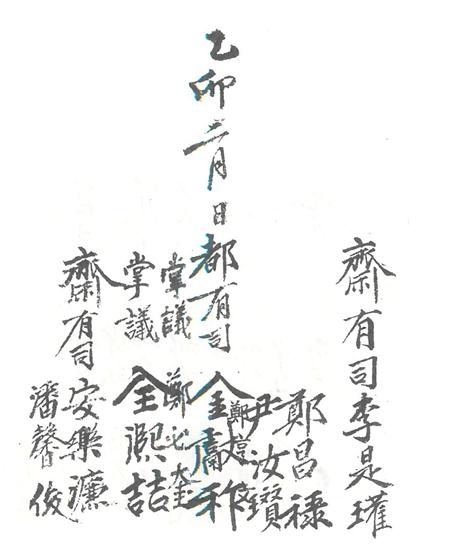 齋有司李是瓘
鄭昌祿
尹汝
鄭
乙卯二月日都有司金
掌議鄭必奎
掌議全熙喆
齋有司安樂濂
潘馨俊